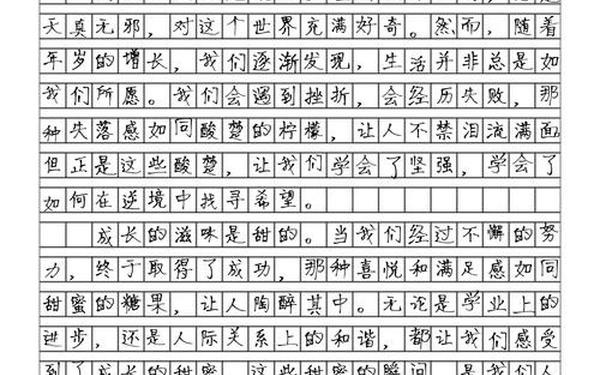 天真无邪，对这个世界充满好奇。然而，随着
年岁的增长，我们逐渐发现，生活并非总是如
我们所愿。我们会遇到挫折，会经历失败，那
种失落感如同酸楚的柠檬，让人不禁泪流满面
但正是这些酸楚，让我们学会了坚强，学会了
如何在逆境中找寻希望。
成长的滋味是甜的。当我们经过不懈的努
力，终于取得了成功，那种喜悦和满足感如同
甜蜜的糖果，让人陶醉其中。无论是学业上的
进步，还是人际关系上的和谐，都让我们感受
到了成长的甜蜜。这些甜蜜的瞬间，是我们人